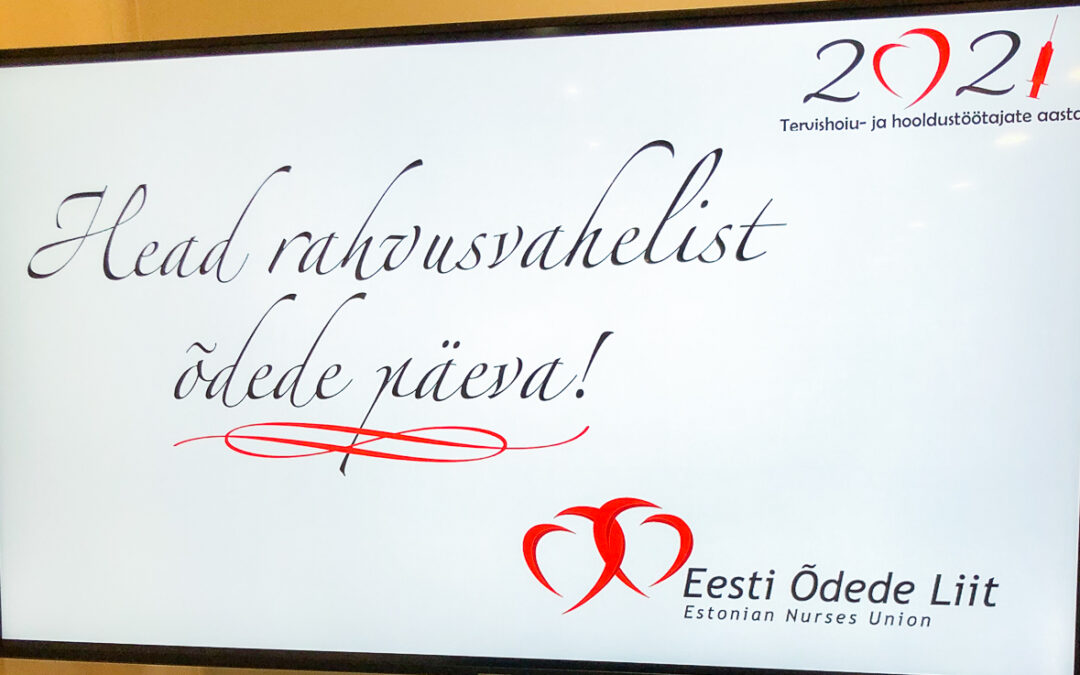 2021
Tervishoiu- ja hooldustöötajate aasta
Head rahvusvahelist
õdede päeva!
Eesti Õdede Liit
Estonian Nurses Union